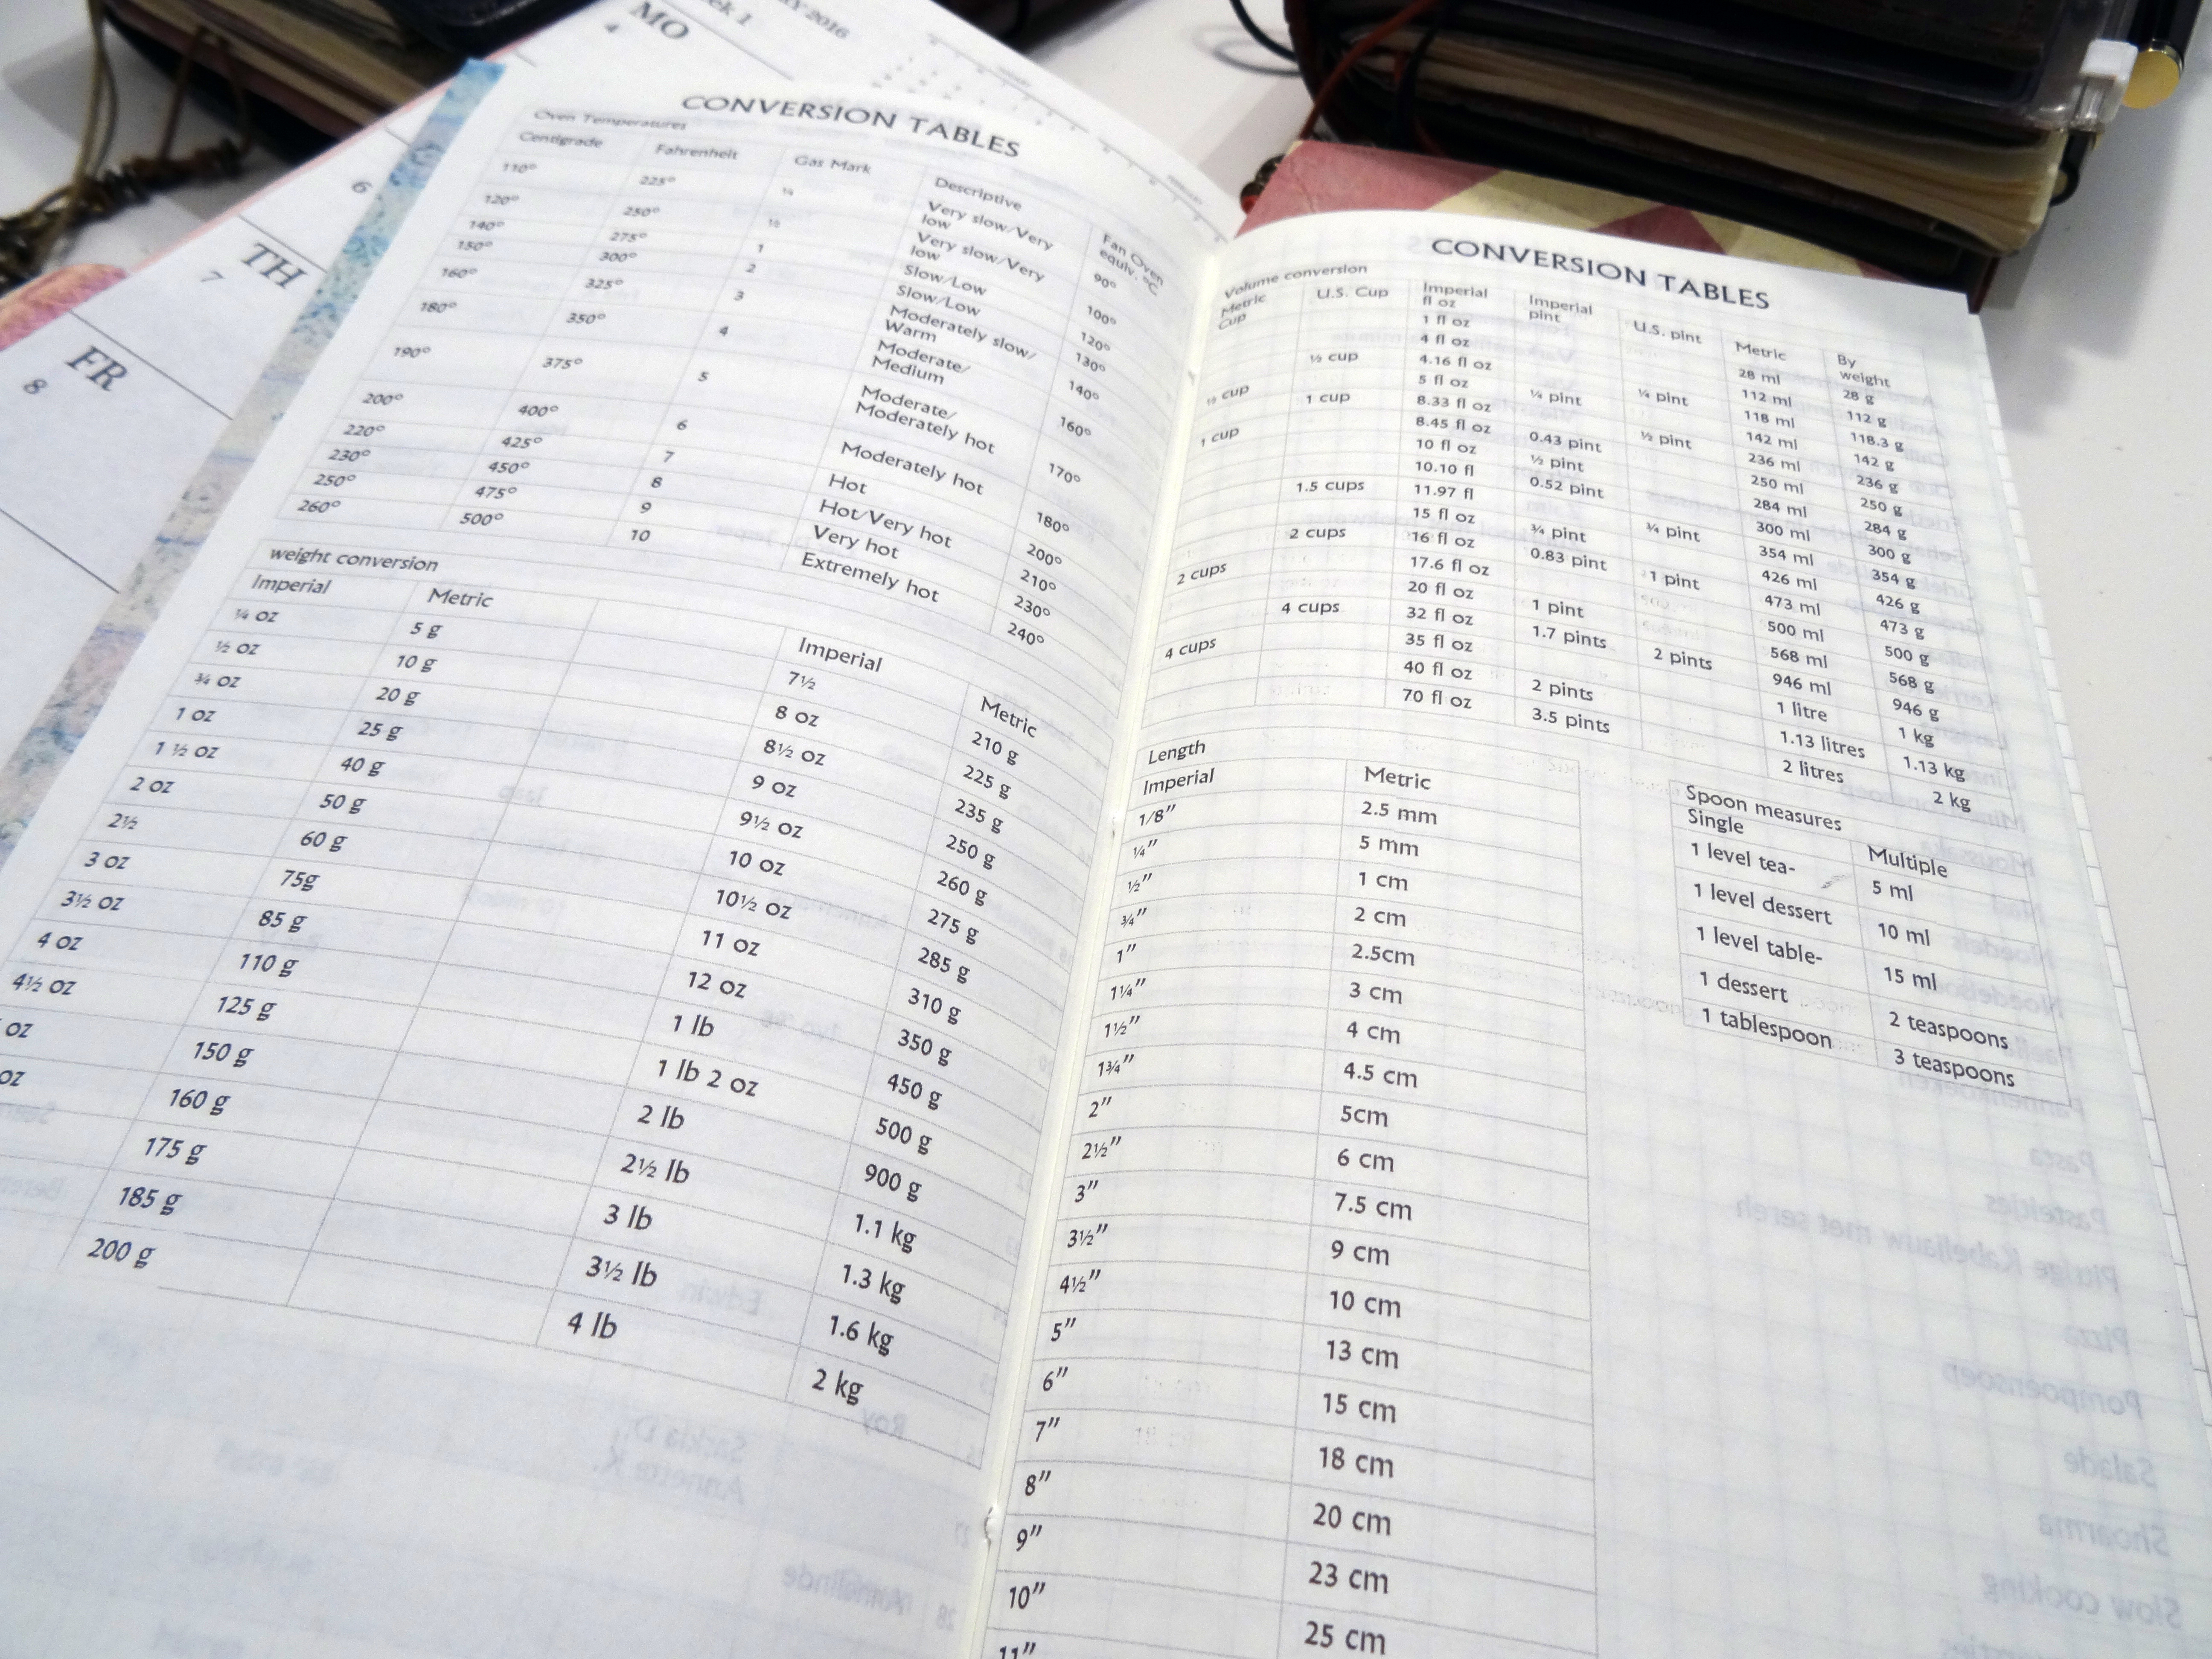 MO
4
6
TH
7
FR
8
2016
CONVERSION TABLES
Oven Temperatures
Centigrade Fahrenheit Gas Mark Descriptive Fan Oven equiv. °C
110° 225° ¼ Very slow/Very low 90°
120° 250° ½ Very slow/Very low 100°
140° 275° 1 Slow/Low 120°
150° 300° 2 Slow/Low 130°
160° 325° 3 Moderately slow/ Warm 140°
180° 350° 4 Moderate/ Medium 160°
190° 375° 5 Moderate/ Moderately hot 170°
200° 400° 6 Moderately hot 180°
220° 425° 7 Hot 200°
230° 450° 8 Hot/Very hot 210°
250° 475° 9 Very hot 230°
260° 500° 10 Extremely hot 240°
weight conversion
Imperial Metric Imperial Metric
¼ oz 5 g 7½ 210 g
½ oz 10 g 8 oz 225 g
¾ oz 20 g 8½ oz 235 g
1 oz 25 g 9 oz 250 g
1 ½ oz 40 g 9½ oz 260 g
2 oz 50 g 10 oz 275 g
2½ 60 g 10½ oz 285 g
3 oz 75g 11 oz 310 g
3½ oz 85 g 12 oz 350 g
4 oz 110 g 1 lb 450 g
4½ oz 125 g 1 lb 2 oz 500 g
oz 150 g 2 lb 900 g
oz 160 g 2½ lb 1.1 kg
175 g 3 lb 1.3 kg
185 g 3½ lb 1.6 kg
200 g 4 lb 2 kg
CONVERSION TABLES
Volume conversion
Metric Cup U.S. Cup Imperial fl oz Imperial pint U.S. pint Metric By weight
1 fl oz 28 ml 28 g
4 fl oz 112 ml 112 g
½ cup 4.16 fl oz 118 ml 118.3 g
½ cup 5 fl oz ¼ pint ¼ pint 142 ml 142 g
1 cup 8.33 fl oz ½ pint 236 ml 236 g
1 cup 8.45 fl oz 0.43 pint 250 ml 250 g
10 fl oz ½ pint 284 ml 284 g
10.10 fl 0.52 pint 300 ml 300 g
1.5 cups 11.97 fl ¾ pint 354 ml 354 g
15 fl oz ¾ pint 426 ml 426 g
2 cups 16 fl oz 0.83 pint 1 pint 473 ml 473 g
2 cups 17.6 fl oz 500 ml 500 g
20 fl oz 1 pint 568 ml 568 g
4 cups 32 fl oz 1.7 pints 2 pints 946 ml 946 g
4 cups 35 fl oz 1 litre 1 kg
40 fl oz 2 pints 1.13 litres 1.13 kg
70 fl oz 3.5 pints 2 litres 2 kg
Length
Imperial Metric
1/8" 2.5 mm
¼" 5 mm
½" 1 cm
¾" 2 cm
1" 2.5cm
1¼" 3 cm
1½" 4 cm
1¾" 4.5 cm
2" 5cm
2½" 6 cm
3" 7.5 cm
3½" 9 cm
4½" 10 cm
5" 13 cm
6" 15 cm
7" 18 cm
8" 20 cm
9" 23 cm
10" 25 cm
11"
Spoon measures
Single Multiple
1 level tea- 5 ml
1 level dessert 10 ml
1 level table- 15 ml
1 dessert 2 teaspoons
1 tablespoon 3 teaspoons